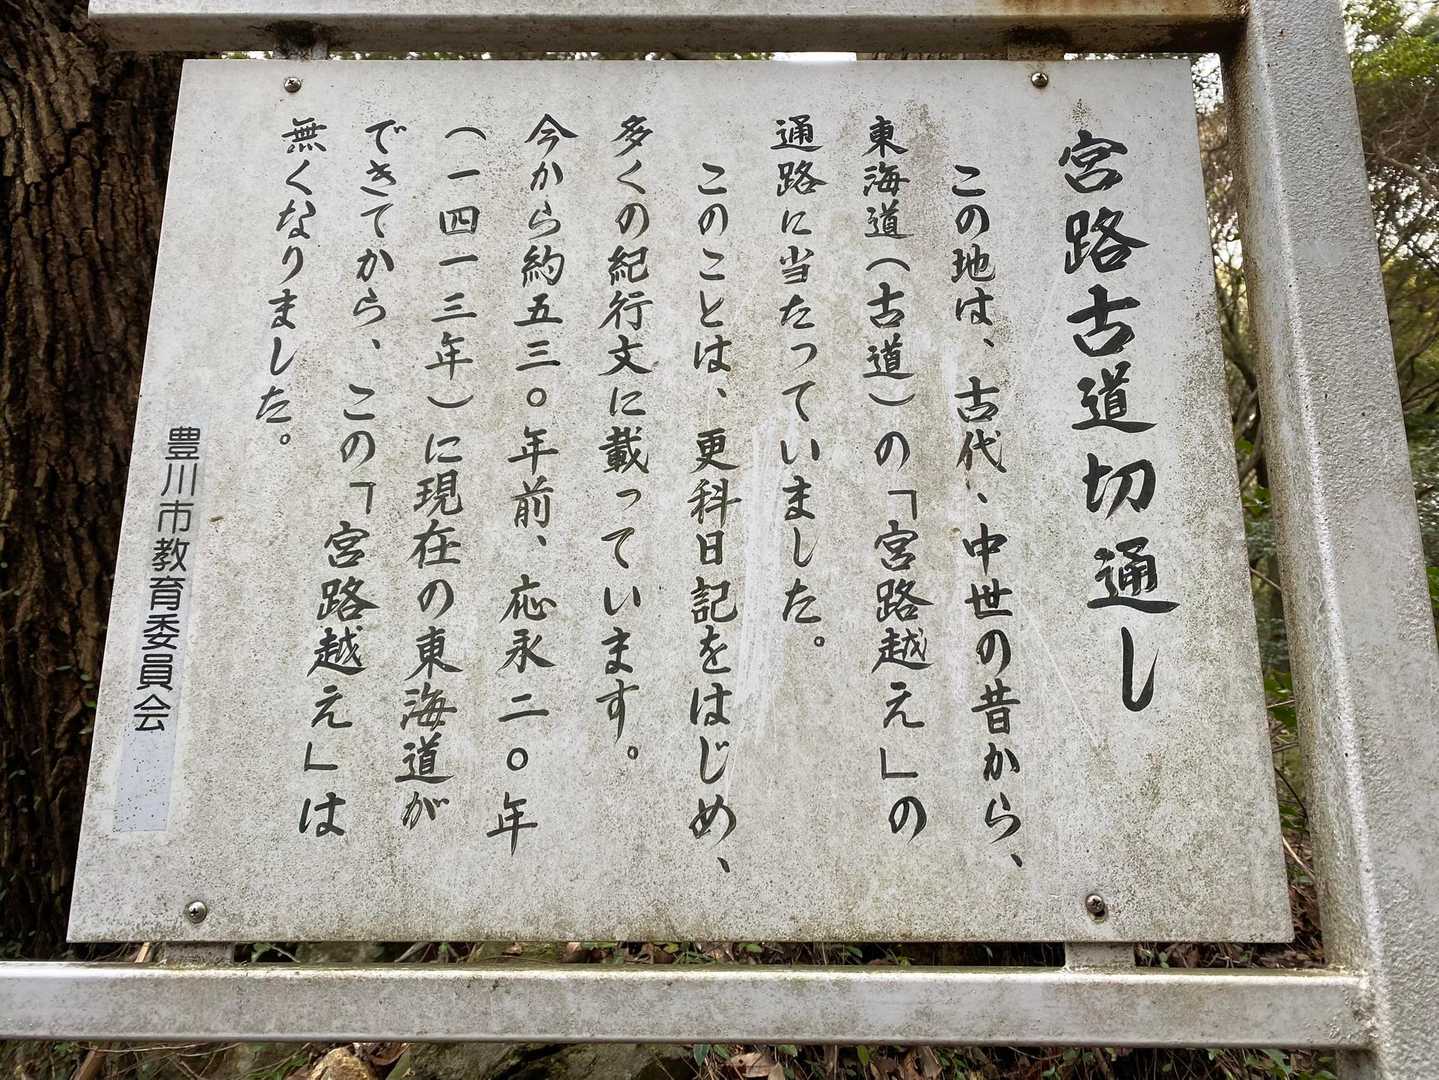 宮路古道切通し
この地は、古代、中世の昔から、
東海道（古道）の「宮路越え」の
通路に当たっていました。
このことは、更科日記をはじめ、
多くの紀行文に載っています。
今から約五三〇年前、応永二〇年
（一四一三年）に現在の東海道が
できてから、この「宮路越え」は
無くなりました。
豊川市教育委員会